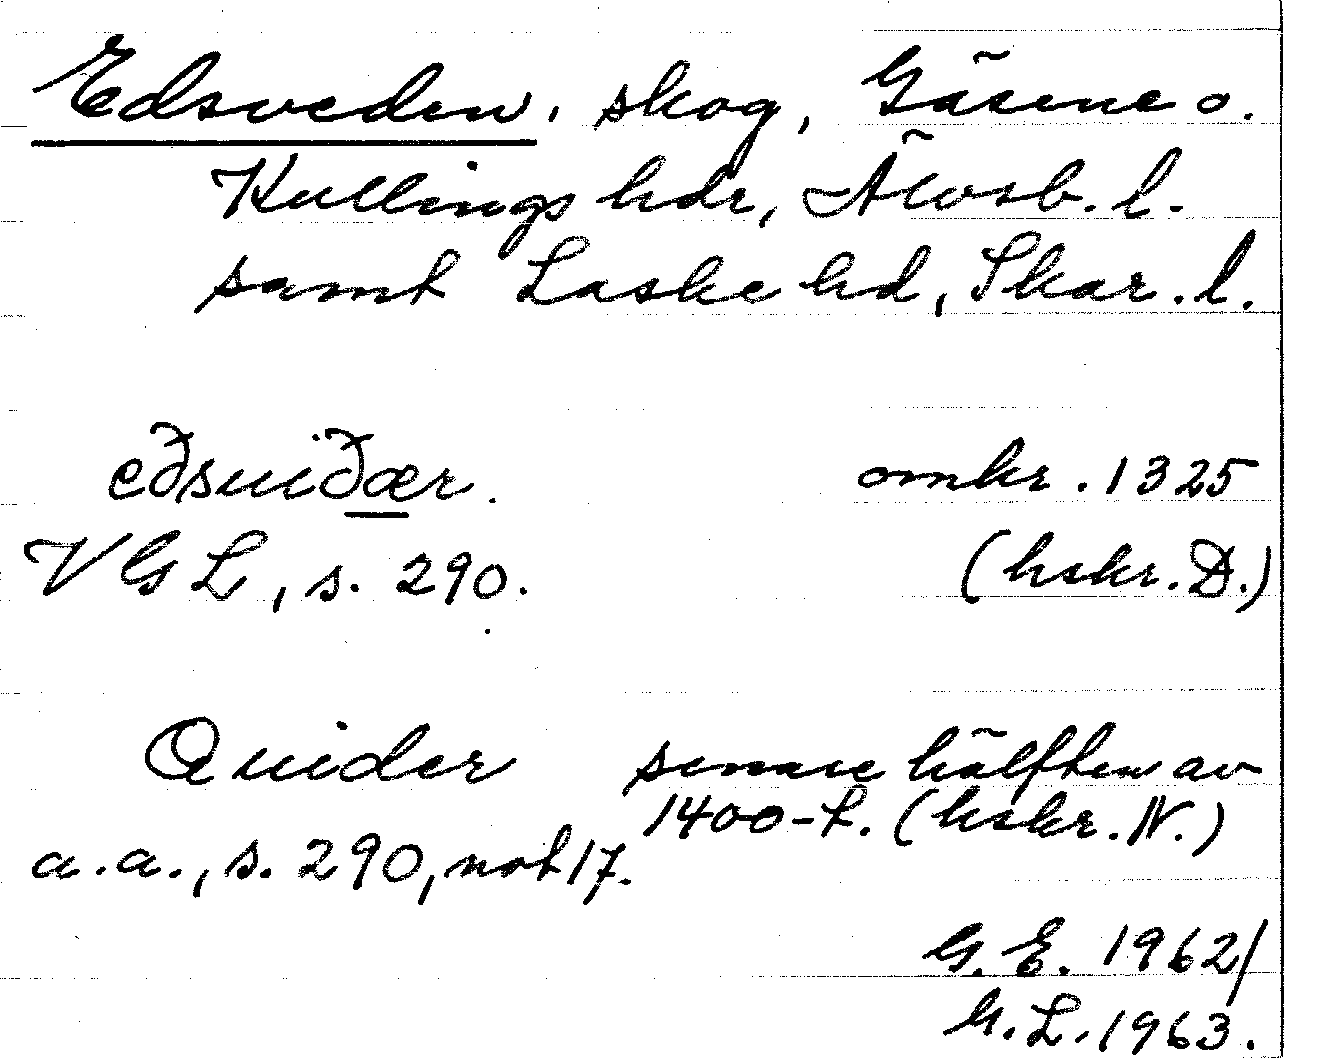 Edsveden, skog, Gäsene o.
Kullings hdr, Älvsb. l.
samt Laske hd, Skar. l.
eðsuiðær. omkr. 1325
VGL, s. 290. (hskr. D.)
Quider senare hälften av
1400-t. (hskr. N.)
a.a., s. 290, not 17.
G. E. 1962/
G. L. 1963.